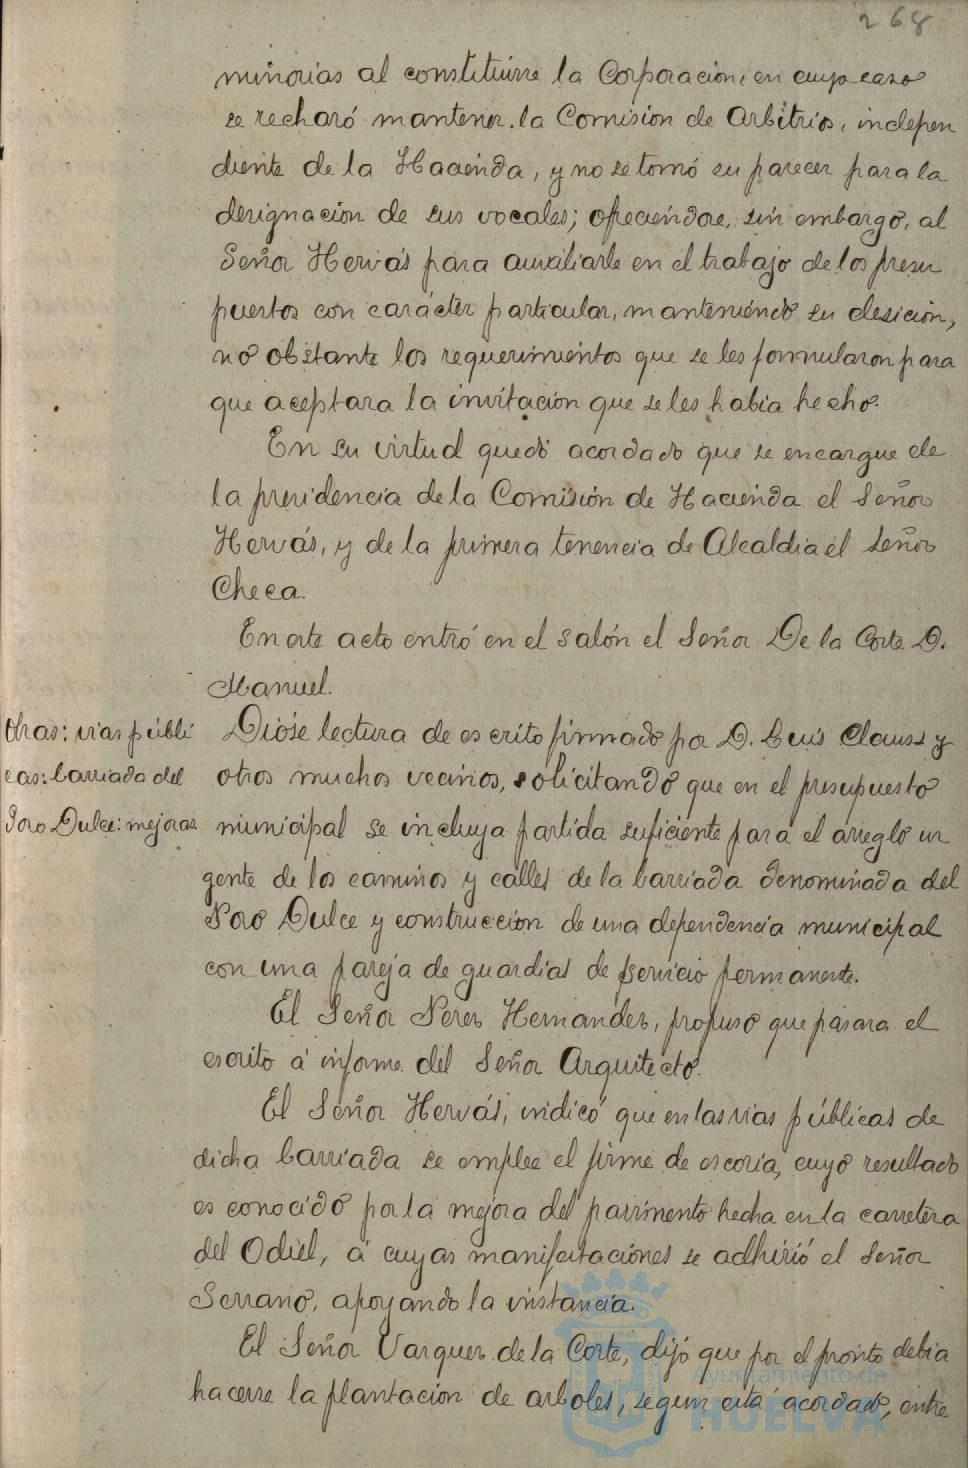 268
minorias al constituirse la Corporación, en cuyo caso
se rechazó mantener la Comisión de Arbitrios, indepen
diente de la Hacienda, y no se tomó su parecer para la
designación de sus vocales; ofreciéndose, sin embargo, al
Señor Hervás para auxiliarle en el trabajo de los presu
puestos con carácter particular, manteniendo su desición,
no obstante los requerimientos que se les formularon para
que aceptara la invitación que se les habia hecho.
En su virtud quedó acordado que se encargue de
la presidencia de la Comisión de Hacienda el Señor
Hervás, y de la primera tenencia de Alcaldia el Señor
Checa.
En este acto entró en el salón el Señor De la Corte D.
Manuel.
Obras: vias públi
cas: barriada del
Pozo Dulce: mejoras
Dióse lectura de escrito firmado por D. Luis Clauss y
otros muchos vecinos, solicitando que en el presupuesto
municipal se incluya partida suficiente para el arreglo ur
gente de los caminos y calles de la barriada denominada del
Pozo Dulce y construcción de una dependencia municipal
con una pareja de guardias de servicio permanente.
El Señor Perez Hernandez, propuso que pasara el
escrito á informe del Señor Arquitecto.
El Señor Hervás, indicó que en las vias públicas de
dicha barriada se emplee el firme de escoria, cuyo resultado
es conocido por la mejora del pavimento hecha en la carretera
del Odiel, á cuyas manifestaciones se adhirió el Señor
Serrano, apoyando la instancia.
El Señor Vazquez de la Corte, dijó que por el pronto debia
hacerse la plantación de arboles, segun está acordado, entre
Ayuntamiento de
HUELVA